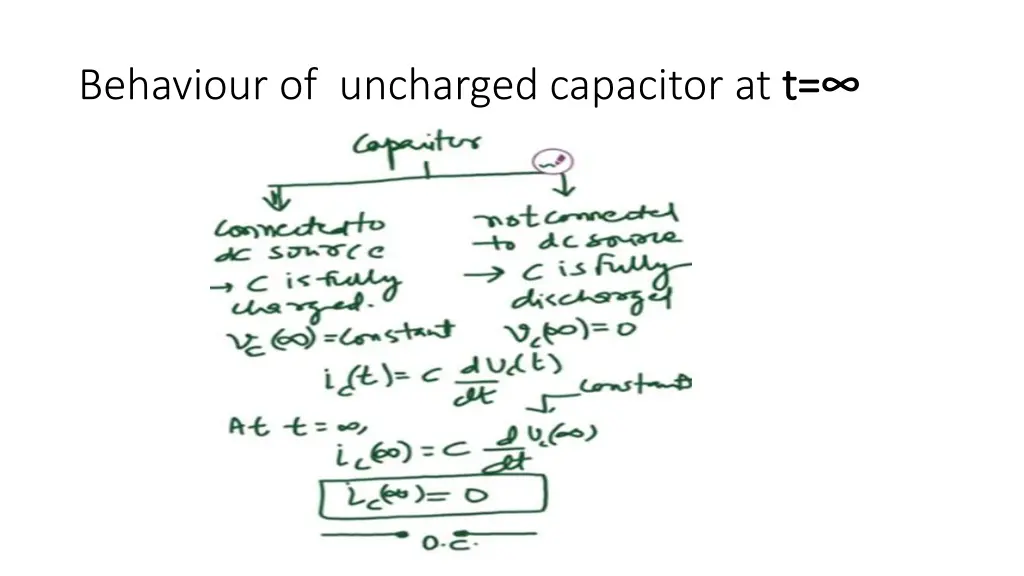 Behaviour of uncharged capacitor at t=∞
Capacitor
connected to
dc source
→ C is fully
charged.
Vc(∞)=constant
not connected
to dc source
→ C is fully
discharged
Vc(∞)=0
ic(t)= C dVc(t)/dt
constant
At t=∞,
ic(∞)= C dVc(∞)/dt
ic(∞)= 0
O.C.